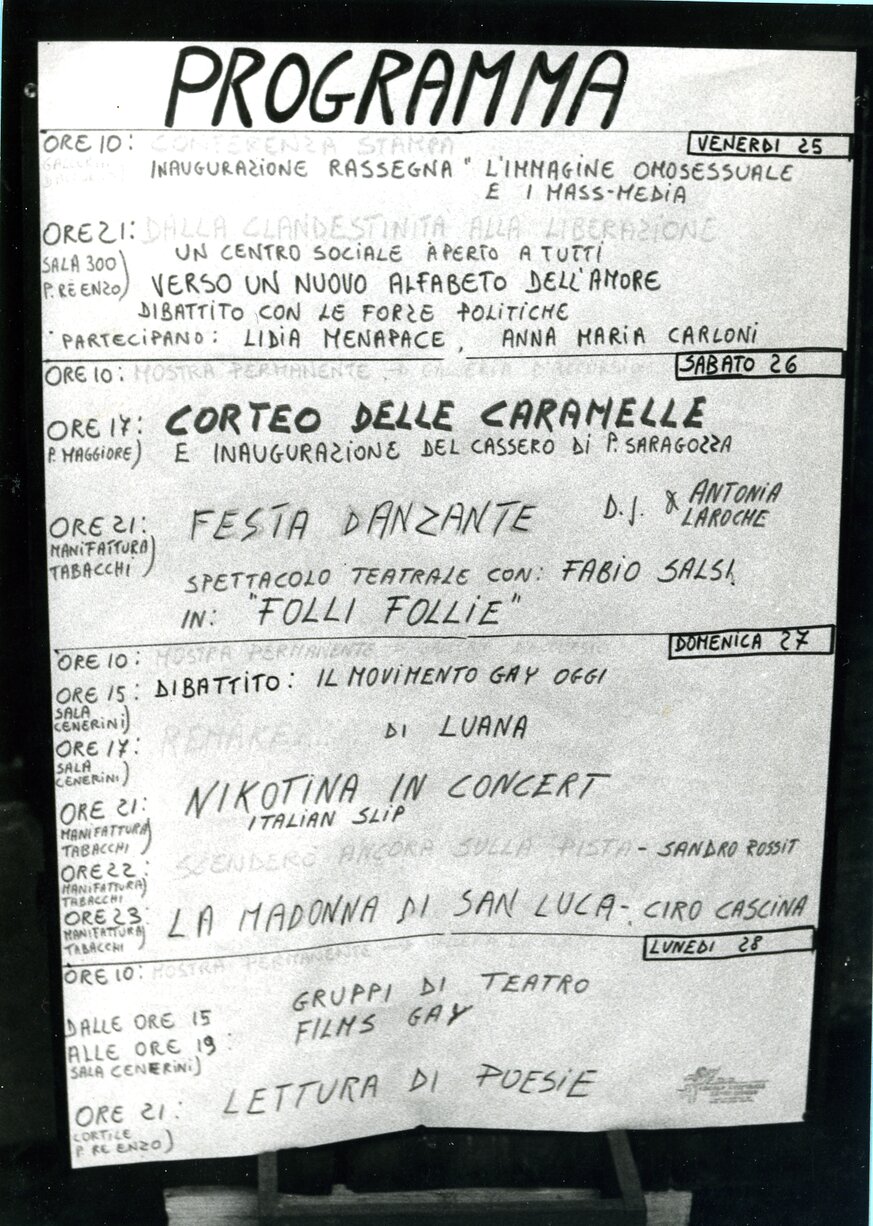 PROGRAMMA
VENERDI 25
ORE 10: CONFERENZA STAMPA
INAUGURAZIONE RASSEGNA " L'IMMAGINE OMOSESSUALE
E I MASS-MEDIA
ORE 21: DALLA CLANDESTINITÀ ALLA LIBERAZIONE
SALA 300)
P. RE ENZO)
UN CENTRO SOCIALE APERTO A TUTTI
VERSO UN NUOVO ALFABETO DELL'AMORE
DIBATTITO CON LE FORZE POLITICHE
PARTECIPANO: LIDIA MENAPACE, ANNA MARIA CARLONI
SABATO 26
ORE 10: MOSTRA PERMANENTE → GALLERIA D'ACCURSIO
ORE 17: CORTEO DELLE CARAMELLE
P. MAGGIORE) E INAUGURAZIONE DEL CASSERO DI P. SARAGOZZA
ORE 21: FESTA DANZANTE D.J. & ANTONIA LAROCHE
MANIFATTURA)
TABACCHI)
SPETTACOLO TEATRALE CON: FABIO SALSI
IN: "FOLLI FOLLIE"
DOMENICA 27
ORE 10: MOSTRA PERMANENTE
ORE 15: DIBATTITO: IL MOVIMENTO GAY OGGI
SALA
CENERINI)
ORE 17: REMAKE DI LUANA
SALA
CENERINI)
ORE 21: NIKOTINA IN CONCERT
MANIFATTURA)
TABACCHI)
ITALIAN SLIP
ORE 22: SCENDERÒ ANCORA SULLA PISTA - SANDRO ROSSIT
MANIFATTURA)
TABACCHI
ORE 23: LA MADONNA DI SAN LUCA - CIRO CASCINA
MANIFATTURA)
TABACCHI)
LUNEDI 28
ORE 10: MOSTRA PERMANENTE
DALLE ORE 15
ALLE ORE 19:
SALA CENERINI)
GRUPPI DI TEATRO
FILMS GAY
ORE 21: LETTURA DI POESIE
CORTILE
P. RE ENZO)